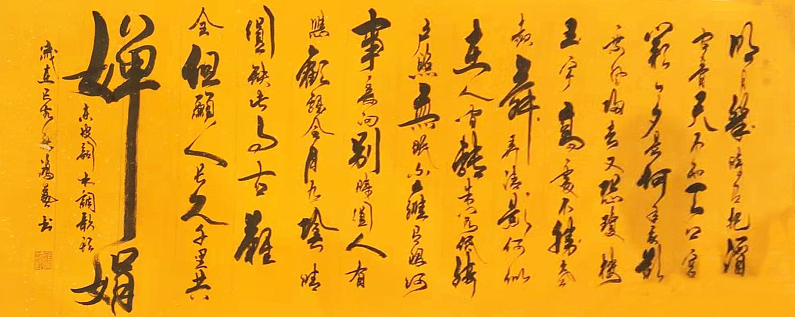 明月幾時有把酒
問青天不知天上宮
闕今夕是何年我欲
乘風歸去又恐瓊樓
玉宇高處不勝寒
起舞弄清影何似
在人間轉朱閣低綺
戶照無眠不應有恨何
事長向別時圓人有
悲歡離合月有陰晴
圓缺此事古難
全但願人長久千里共
嬋娟
東坡詞水調歌頭
歲在己亥書